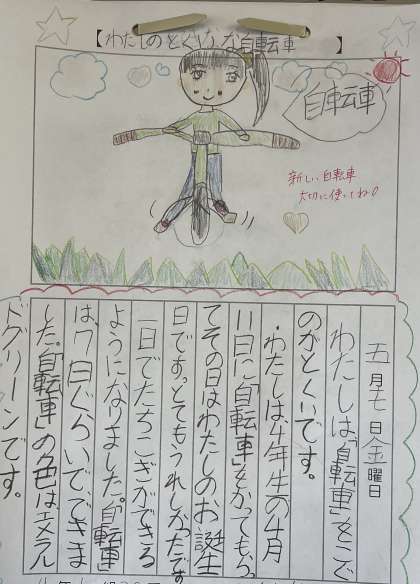 【わたしのとくいな自転車】
自転車
新しい自転車
大切に使ってね!
五月七日金曜日
わたしは「自転車」をこぐ
のがとくいです。
わたしは4年生の4月
11日に「自転車」をかってもらっ
てその日はわたしのお誕生
日です。とてもうれしかったです
一日でたちこぎができる
ようになりました。「自転車」
は、7日ぐらいで、できま
した。「自転車」の色は、エメラル
ドグリーンです。